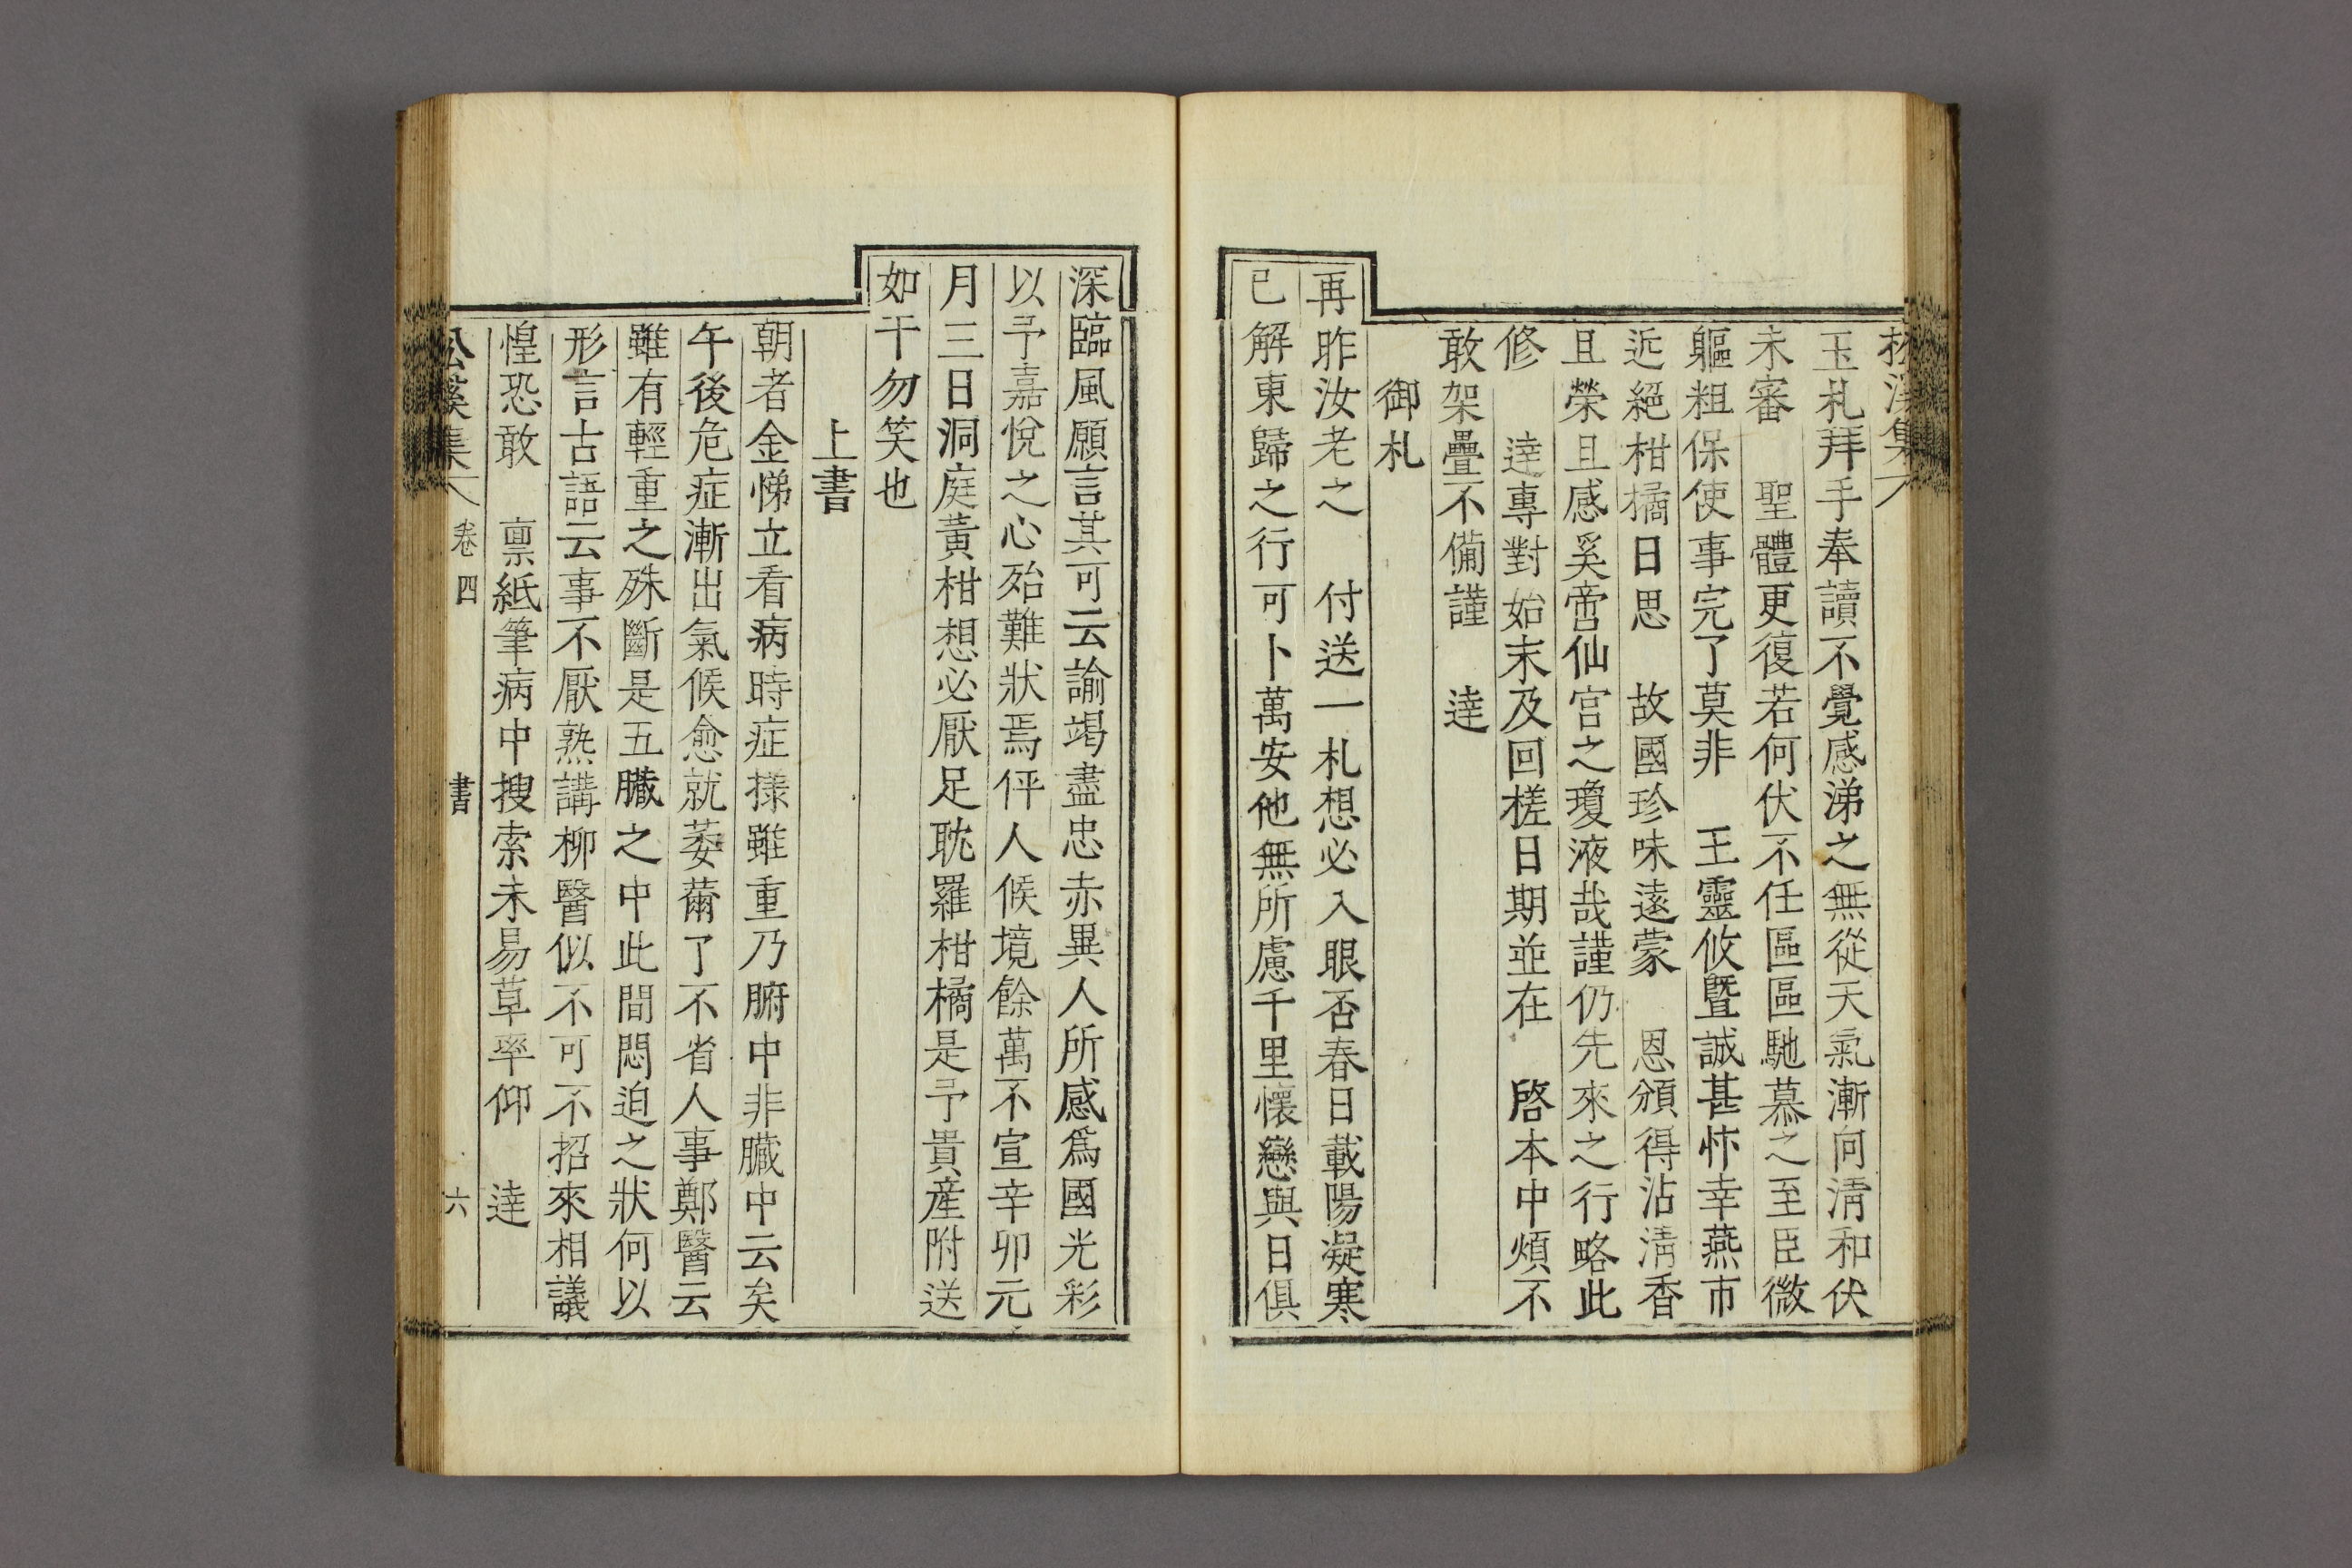 松溪集
玉札拜手奉讀不覺感涕之無從天氣漸向淸和伏
未審　聖體更復若何伏不任區區馳慕之至臣微
軀粗保使事完了莫非　王靈攸曁誠甚忭幸燕市
近絕柑橘日思　故國珍味遠蒙　恩頒得沾淸香
且榮且感奚啻仙宮之瓊液哉謹仍先來之行略此
修　達專對始末及回槎日期並在　啓本中煩不
敢架疊不備謹　達
御札
再昨汝老之　付送一札想必入眼否春日載陽凝寒
已解東歸之行可卜萬安他無所慮千里懷戀與日俱
深臨風願言其可云諭竭盡忠赤異人所感爲國光彩
以予嘉悅之心殆難狀焉伻人候境餘萬不宣辛卯元
月三日洞庭黃柑想必厭足耽羅柑橘是予貴産附送
如干勿笑也
上書
朝者金悌立看病時症㨾雖重乃腑中非臟中云矣
午後危症漸出氣候愈就萎薾了不省人事鄭醫云
雖有輕重之殊斷是五臟之中此間悶迫之狀何以
形言古語云事不厭熟講柳醫似不可不招來相議
惶恐敢　禀紙筆病中搜索未易草率仰　達
松溪集
卷四
書
六